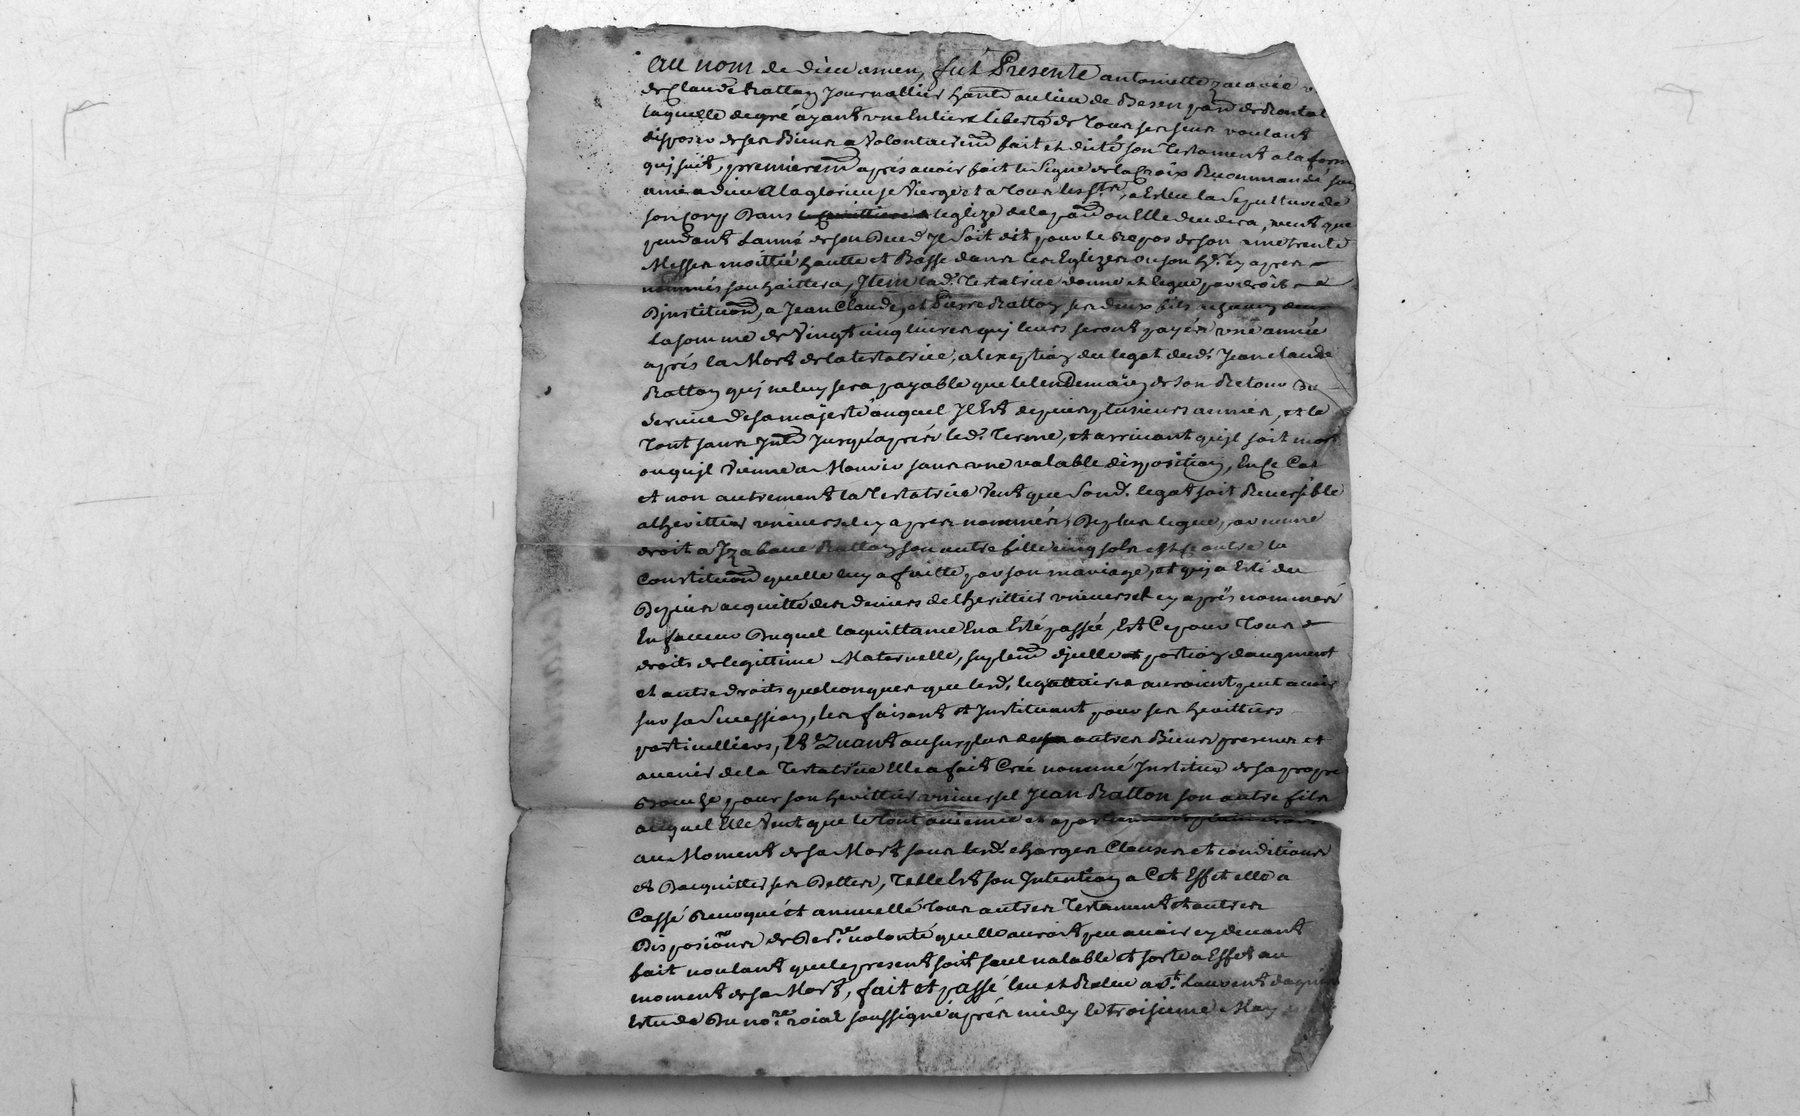 au nom de dieu amen, fut Presente antoinette
de Claude Ratton Journallier au lieu de Besen de
laquelle de gré ayant une Entiere liberté de Tous ses sens voulant
disposer de ses Biens a Volontairem̄t fait et dicté son Testament a la form
qui suit, premierem̄t aprés avoir fait le Signe de la Croix Recommandé son
ame a dieu A la glorieuse Vierge et a Tous les Sts, a Esleu la Sepulture de
son corp Dans leglize de la ou Elle decedera, veut que
pendant Lanné de son Deced Jl Soit dit pour le Repos de son ame trente
Messes moittié hautte et Basse dans les Eglizes ou son hr. cy apres
nommés souhaittera, Jtem la d. Testatrice donne et legue par droit
Djnstituōn, a Jean Claude, et Pierre Ratton ses deux fils
La somme de Vingt cinq livres qui leurs seront payés une année
aprés la Mort de la testatrice, a lexeption du legat dud. Jean claude
Ratton qui ne luy sera payable que le lendemain de son Retour Du
Service de sa majesté auquel Jl Est depuis plusieurs années, et le
Tout sans Jusqu'aprés led. Terme, et arrivant qujl soit mort
ou qujl Vienne a Mourir sans une valable disposition, En Ce Cas
et non autrement la Testatrice Veut que Sond. legat soit Reversible
a lheritier universel cy apres nommé, De plus legue, par meme
droit a Jzabeau Ratton son autre fille cinq sols outre la
Constituōn quelle luy a faitte par son mariage, et qui a Esté du
Depuis acquitté des deniers de lherittier universel cy aprés nommé
En faveur Duquel laquittance En a Esté passée, Est Ce pour Tous
droits de legittime Maternelle, suplem̄t dJcelle portion daugment
et autre droits quelconques que lesd. legattaires auroient peut avoir
sur sa Sucession, les faisant et Jnstituant pour ses herittiers
particulliers, Et Quant au surplus de autres Biens presents et
avenir de la Testatrice Elle a fait Creé nommé Jnstitué de sa propre
Bouche pour son herittier universel Jean Ratton son autre fils
auquel Elle Veut que le tout avienne et
au Moment de sa Mort sous lesd. charges Clauses et conditions
et Dacquitter ses Dettes, Telle Est son Jntention a Cet Effet elle a
Cassé Revoqué et annullé Tous autres Testament et autres
Disposiōns de Dere. volonté quelle auroit peu avoir cy devant
fait voulant que le present soit seul valable et sorte a Effet au
moment de sa Mort, fait et passé leu et Releu a St. Laurent
Estude Du nore. roial soussigné aprés midy le troisieme May